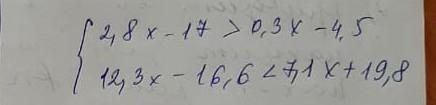 2,8x - 17 > 0,3x - 4,5
12,3x - 16,6 < 7,1x + 19,8